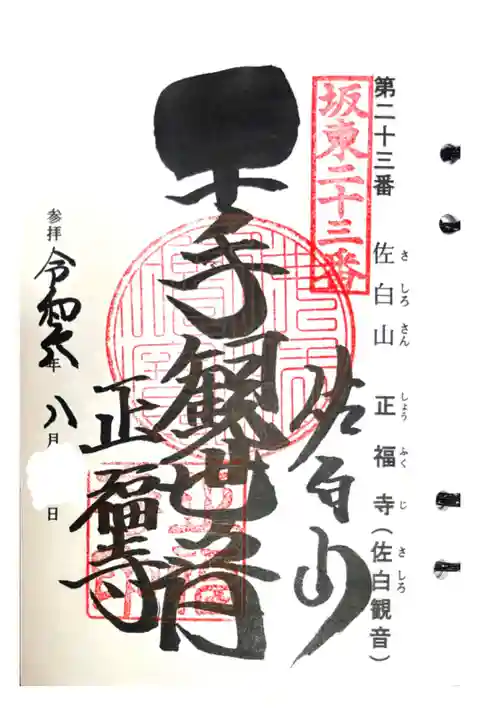 第二十三番 佐白山 正福寺(佐白観音)
さしろさん しょうふくじ さしろ
坂東二十三番
佐白山
千手観世音
正福寺
参拝 令和六年 八月 日